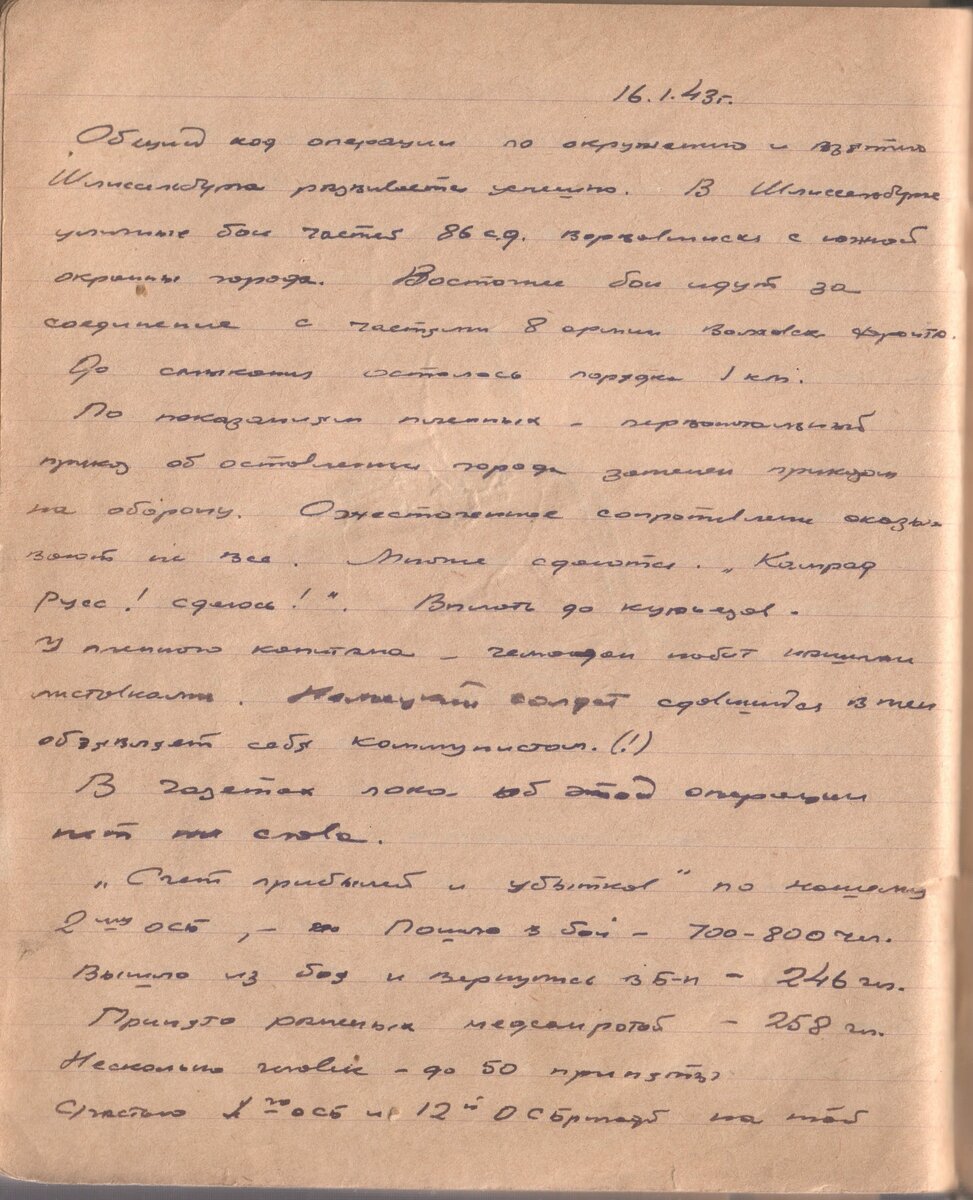 16.1.43г.
Общий ход операции по окружению и взятию
Шлиссельбурга развивается успешно. В Шлиссельбурге
уличные бои частей 86 с.д. ворвавшихся с южной
окраины города. Восточнее бои идут за
соединение с частями 8 армии Волховск фронта.
До смыкания осталось порядка 1 км.
По показаниям пленных – первоначальный
приказ об оставлении города заменен приказом
на оборону. Ожесточенное сопротивление оказы-
вают не все. Многие сдаются. „Камрад
Русс! сдаюсь!“. Вплоть до курьезов.
У пленного капитана – чемодан набит нашими
листовками. Немецкий солдат сдавшийся в плен
объявляет себя коммунистом. (!)
В газетах пока об этой операции
нет ни слова.
„Счет прибылей и убытков“ по нашему
2му ОСБ, – Пошло в бой – 700–800 чел.
Вышло из боя и вернулись в Б-н – 246 чел.
Принято раненых медсанротой – 258 чел.
Несколько человек – до 50 приняты
1го ОСБ 12й ОСБригад на той